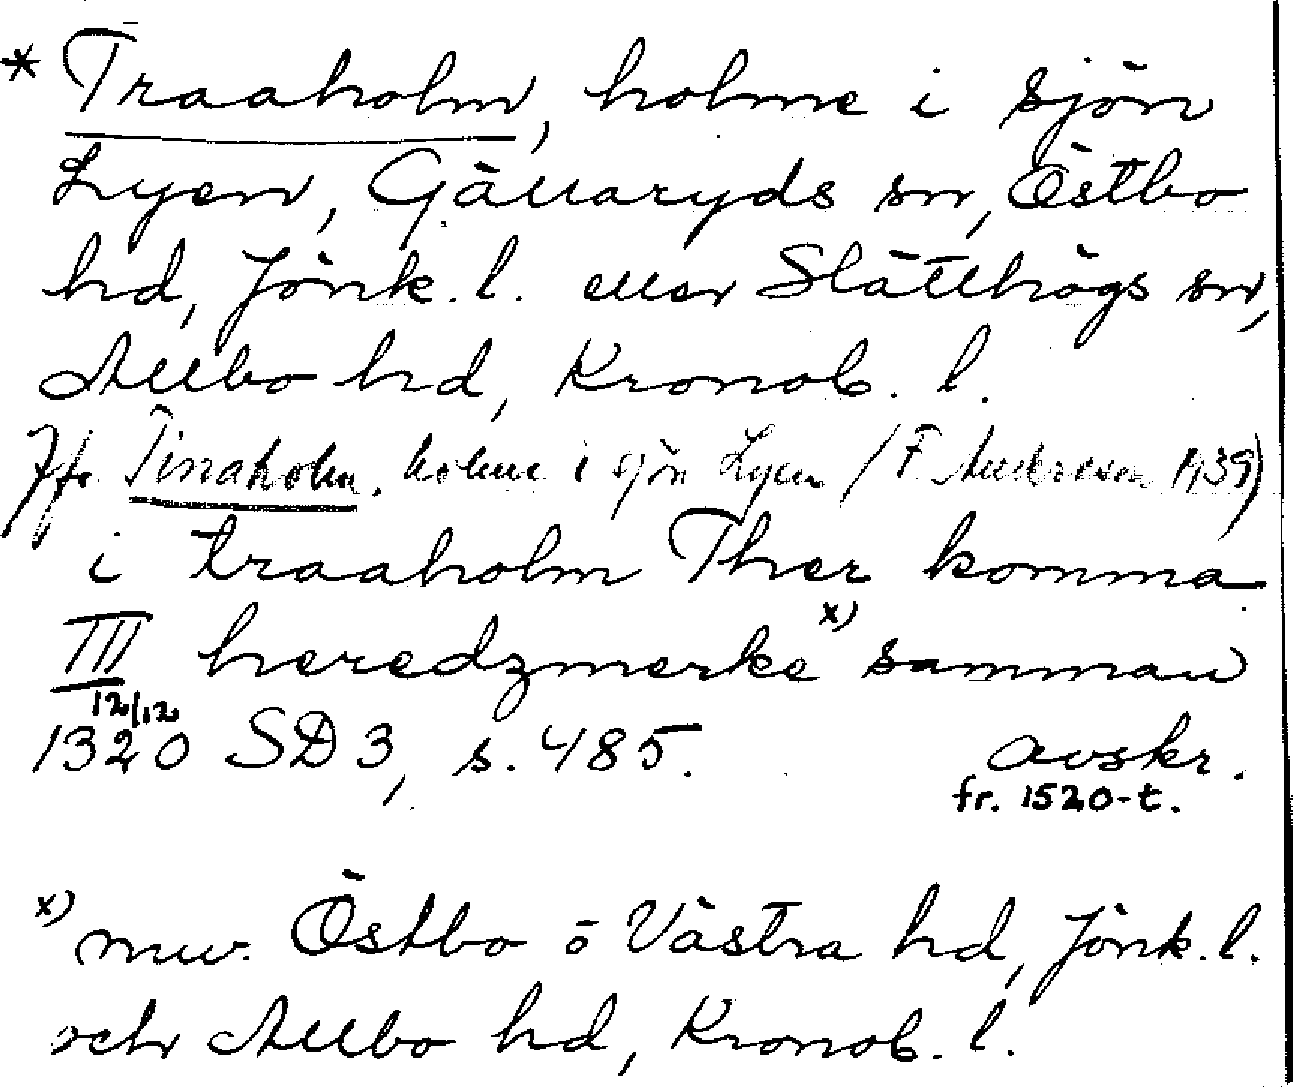 * Traaholm, holme i sjön
Lyen, Gällaryds sn, Östbo
hd, Jönk. l. eller Slätthögs sn,
Allbo hd, Kronob. l.
Jfr Tinaholm, holme i sjön Lyen (F Andersson 1939)
i traaholm Ther komma
III heredzmerke x) samman
12/12
1320 SD 3, s. 485. avskr.
fr. 1520-t.
x) nuv. Östbo o Västra hd, Jönk. l.
och Allbo hd, Kronob. l.